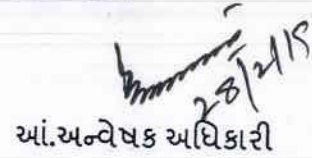 28/2/15
આં.અન્વેષક અધિકારી